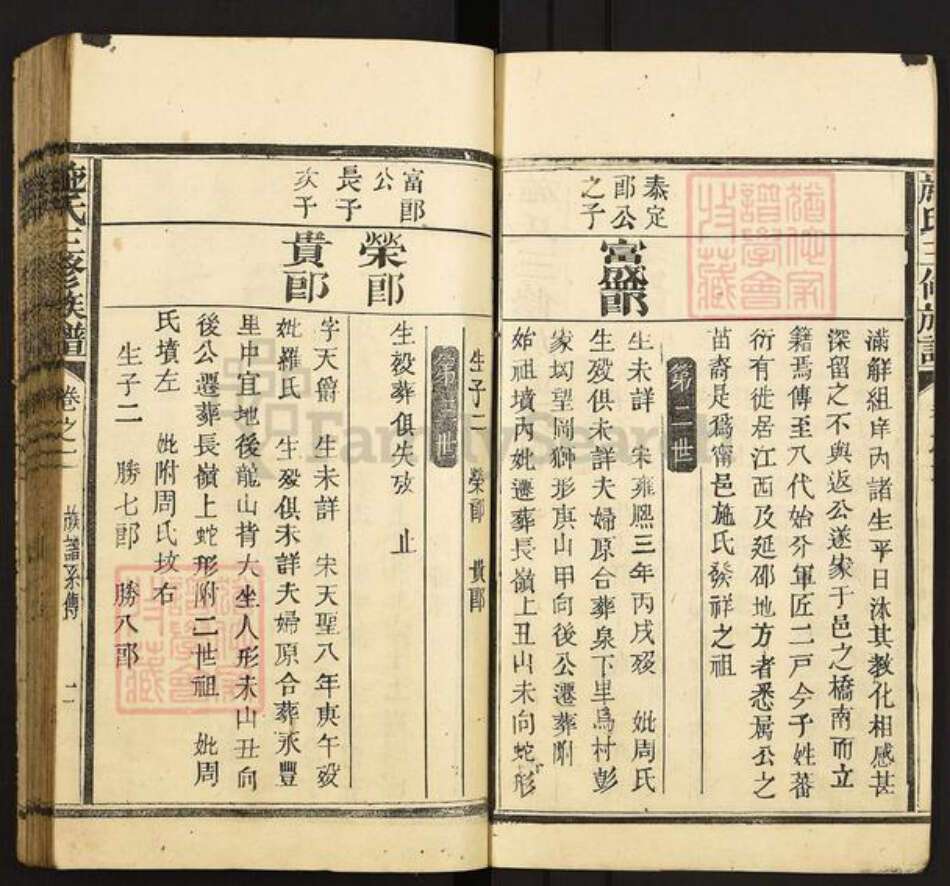 施氏三修族譜
滿解組庠內諸生平日沐其教化相感甚
深留之不與返公遂家于邑之橋南而立
籍焉傳至八代始分軍匠二戶今子姓蕃
衍有徙居江西及延邵地方者悉属公之
苗裔是為甯邑施氏發祥之祖
第二世
泰定
郎公
之子
富盛郎
生未詳 宋雍熙三年丙戌殁 妣周氏
生殁俱未詳夫婦原合葬泉下里烏村彭
家岡望岡獅形庚山甲向後公遷葬剛
始祖墳內妣遷葬長嶺上丑山未向蛇形
生子二 榮郎 貴郎
第三世
富郎
公
長子
次子
榮郎
生殁葬俱失攷 止
貴郎
字天爵 生未詳 宋天聖八年庚午殁
妣羅氏 生殁俱未詳夫婦原合葬永豐
里中宜地後龍山背大坐人形未山丑向
後公遷葬長嶺上蛇形附二世祖 妣周
氏墳左 妣附周氏坟右
生子二 勝七郎 勝八郎
施氏三修族譜 卷之一 族譜系傳 二
FamilySearch